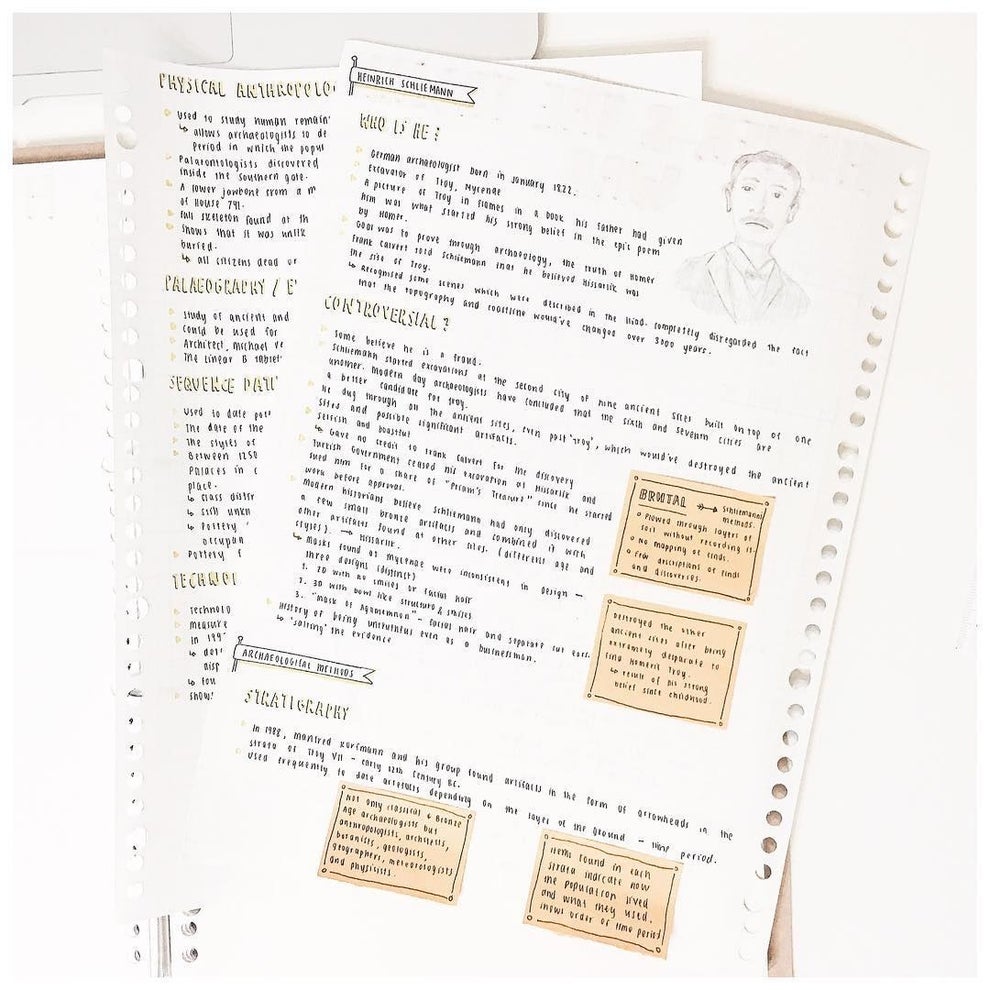 PHYSICAL ANTHROPOLO
Used to study human remain
↳ allows archaeologists to de
Period in which the popul
Palaeontologists discovered
inside the Southern gate.
A lower jawbone from a m
of House 741.
Full skeleton found at th
Shows that it was unlik
buried.
↳ all citizens dead or
PALAEOGRAPHY / E
Study of ancient and
Could be used for
Architect, Michael Ve
The Linear B tablet
SEQUENCE DATI
Used to date pott
The date of the
The styles of
Between 1250
Palaces in c
place.
↳ Class distr
↳ Still unkn
↳ Pottery
occupan
Pottery f
TECHNOL
Technolo
Measure
In 199
↳ dat
↳ fou
Show
HEINRICH SCHLIEMANN
WHO IS HE?
German archaeologist born in January 1822.
Excavator of Troy, Mycenae
A picture of Troy in flames in a book his father had given
him was what started his strong belief in the epic poem
by Homer.
Goal was to prove through archaeology, the truth of Homer
Frank Calvert told Schliemann that he believed Hissarlik was
the site of Troy.
↳ Recognised some scenes which were described in the Iliad. Completely disregarded the fact
that the topography and coastline would've changed over 3000 years.
CONTROVERSIAL?
Some believe he is a fraud.
Schliemann started excavations at the second city of nine ancient sites built on top of one
another. Modern day archaeologists have concluded that the sixth and seventh cities are
a better candidate for Troy.
He dug through on the ancient sites, even post 'Troy', which would've destroyed the ancient
sites and possible significant artifacts.
Selfish and boastful
↳ Gave no credit to Frank Calvert for the discovery
Turkish Government ceased his excavation at Hissarlik and
sued him for a share of "Priam's Treasure" since he started
work before approval.
Modern historians believe Schliemann had only discovered
a few small bronze artifacts and combined it with
other artifacts found at other sites. (different age and
styles). → Hissarlik.
↳ Masks found at Mycenae were inconsistent in design –
three designs (distinct)
1. 2D with no smiles or facial hair
2. 3D with bowl like structure & smiles.
3. "Mask of Agamemnon" – facial hair and separate cut ears.
History of being untruthful even as a businessman.
↳ 'salting' the evidence
BRUTAL → Schliemann's
methods.
Plowed through layers of
soil without recording it.
No mapping of finds.
Few descriptions of finds
and discoveries.
Destroyed the other
ancient sites after being
extremely desperate to
find Homeric Troy.
↳ result of his strong
belief since childhood.
ARCHAEOLOGICAL METHODS
STRATIGRAPHY
In 1988, Manfred Korfmann and his group found artifacts in the form of arrowheads in the
strata of Troy VII – early 12th Century BC.
Used frequently to date artefacts depending on the layer of the ground – time period.
Not only classical & Bronze
Age archaeologists but
anthropologists, architects,
botanists, geologists,
geographers, meteorologists
and physicists.
Items found in each
strata indicate how
the population lived
and what they used.
Shows order of time period